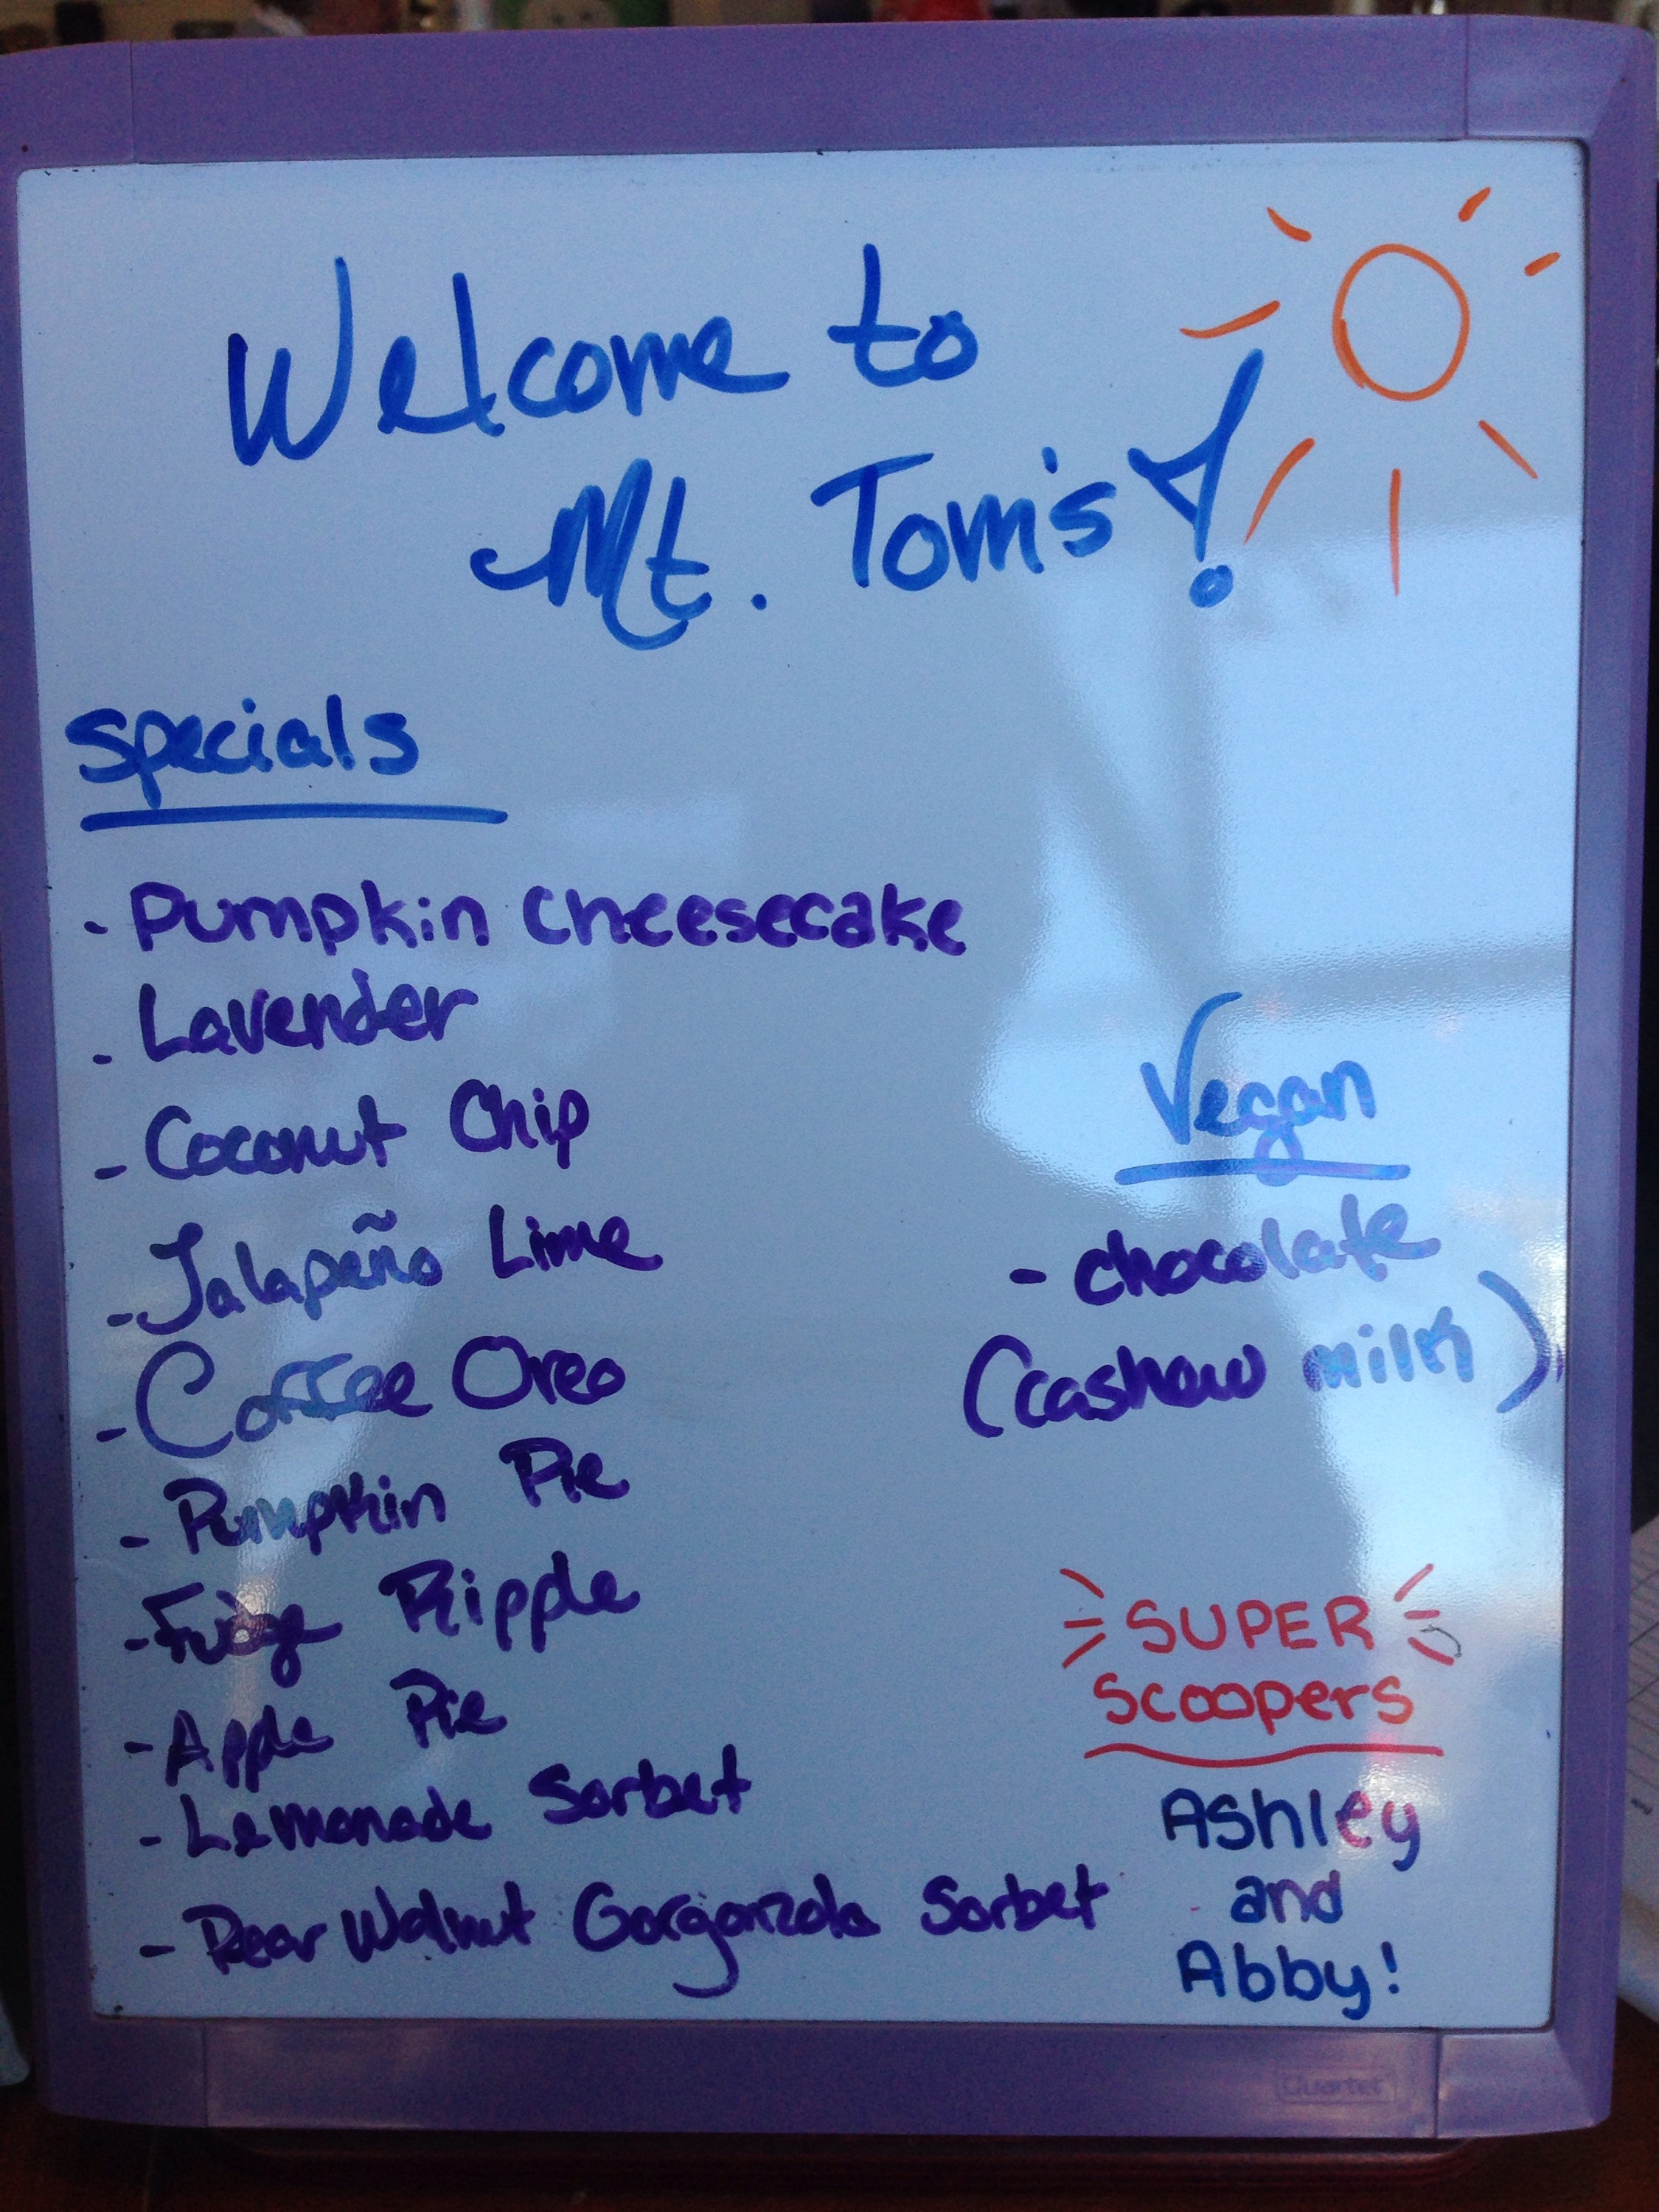 Welcome to
Mt. Tom's!
Specials
- Pumpkin Cheesecake
- Lavender
- Coconut Chip
- Jalapeño Lime
- Coffee Oreo
- Pumpkin Pie
- Fudge Ripple
- Apple Pie
- Lemonade Sorbet
- Pear Walnut Gorgonzola Sorbet
Vegan
- chocolate
(cashew milk)
SUPER
Scoopers
Ashley
and
Abby!
Quartet